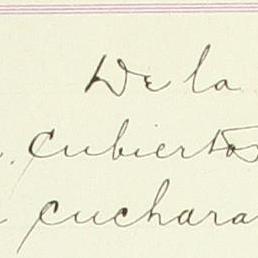 De la
cubiertos
cuchara